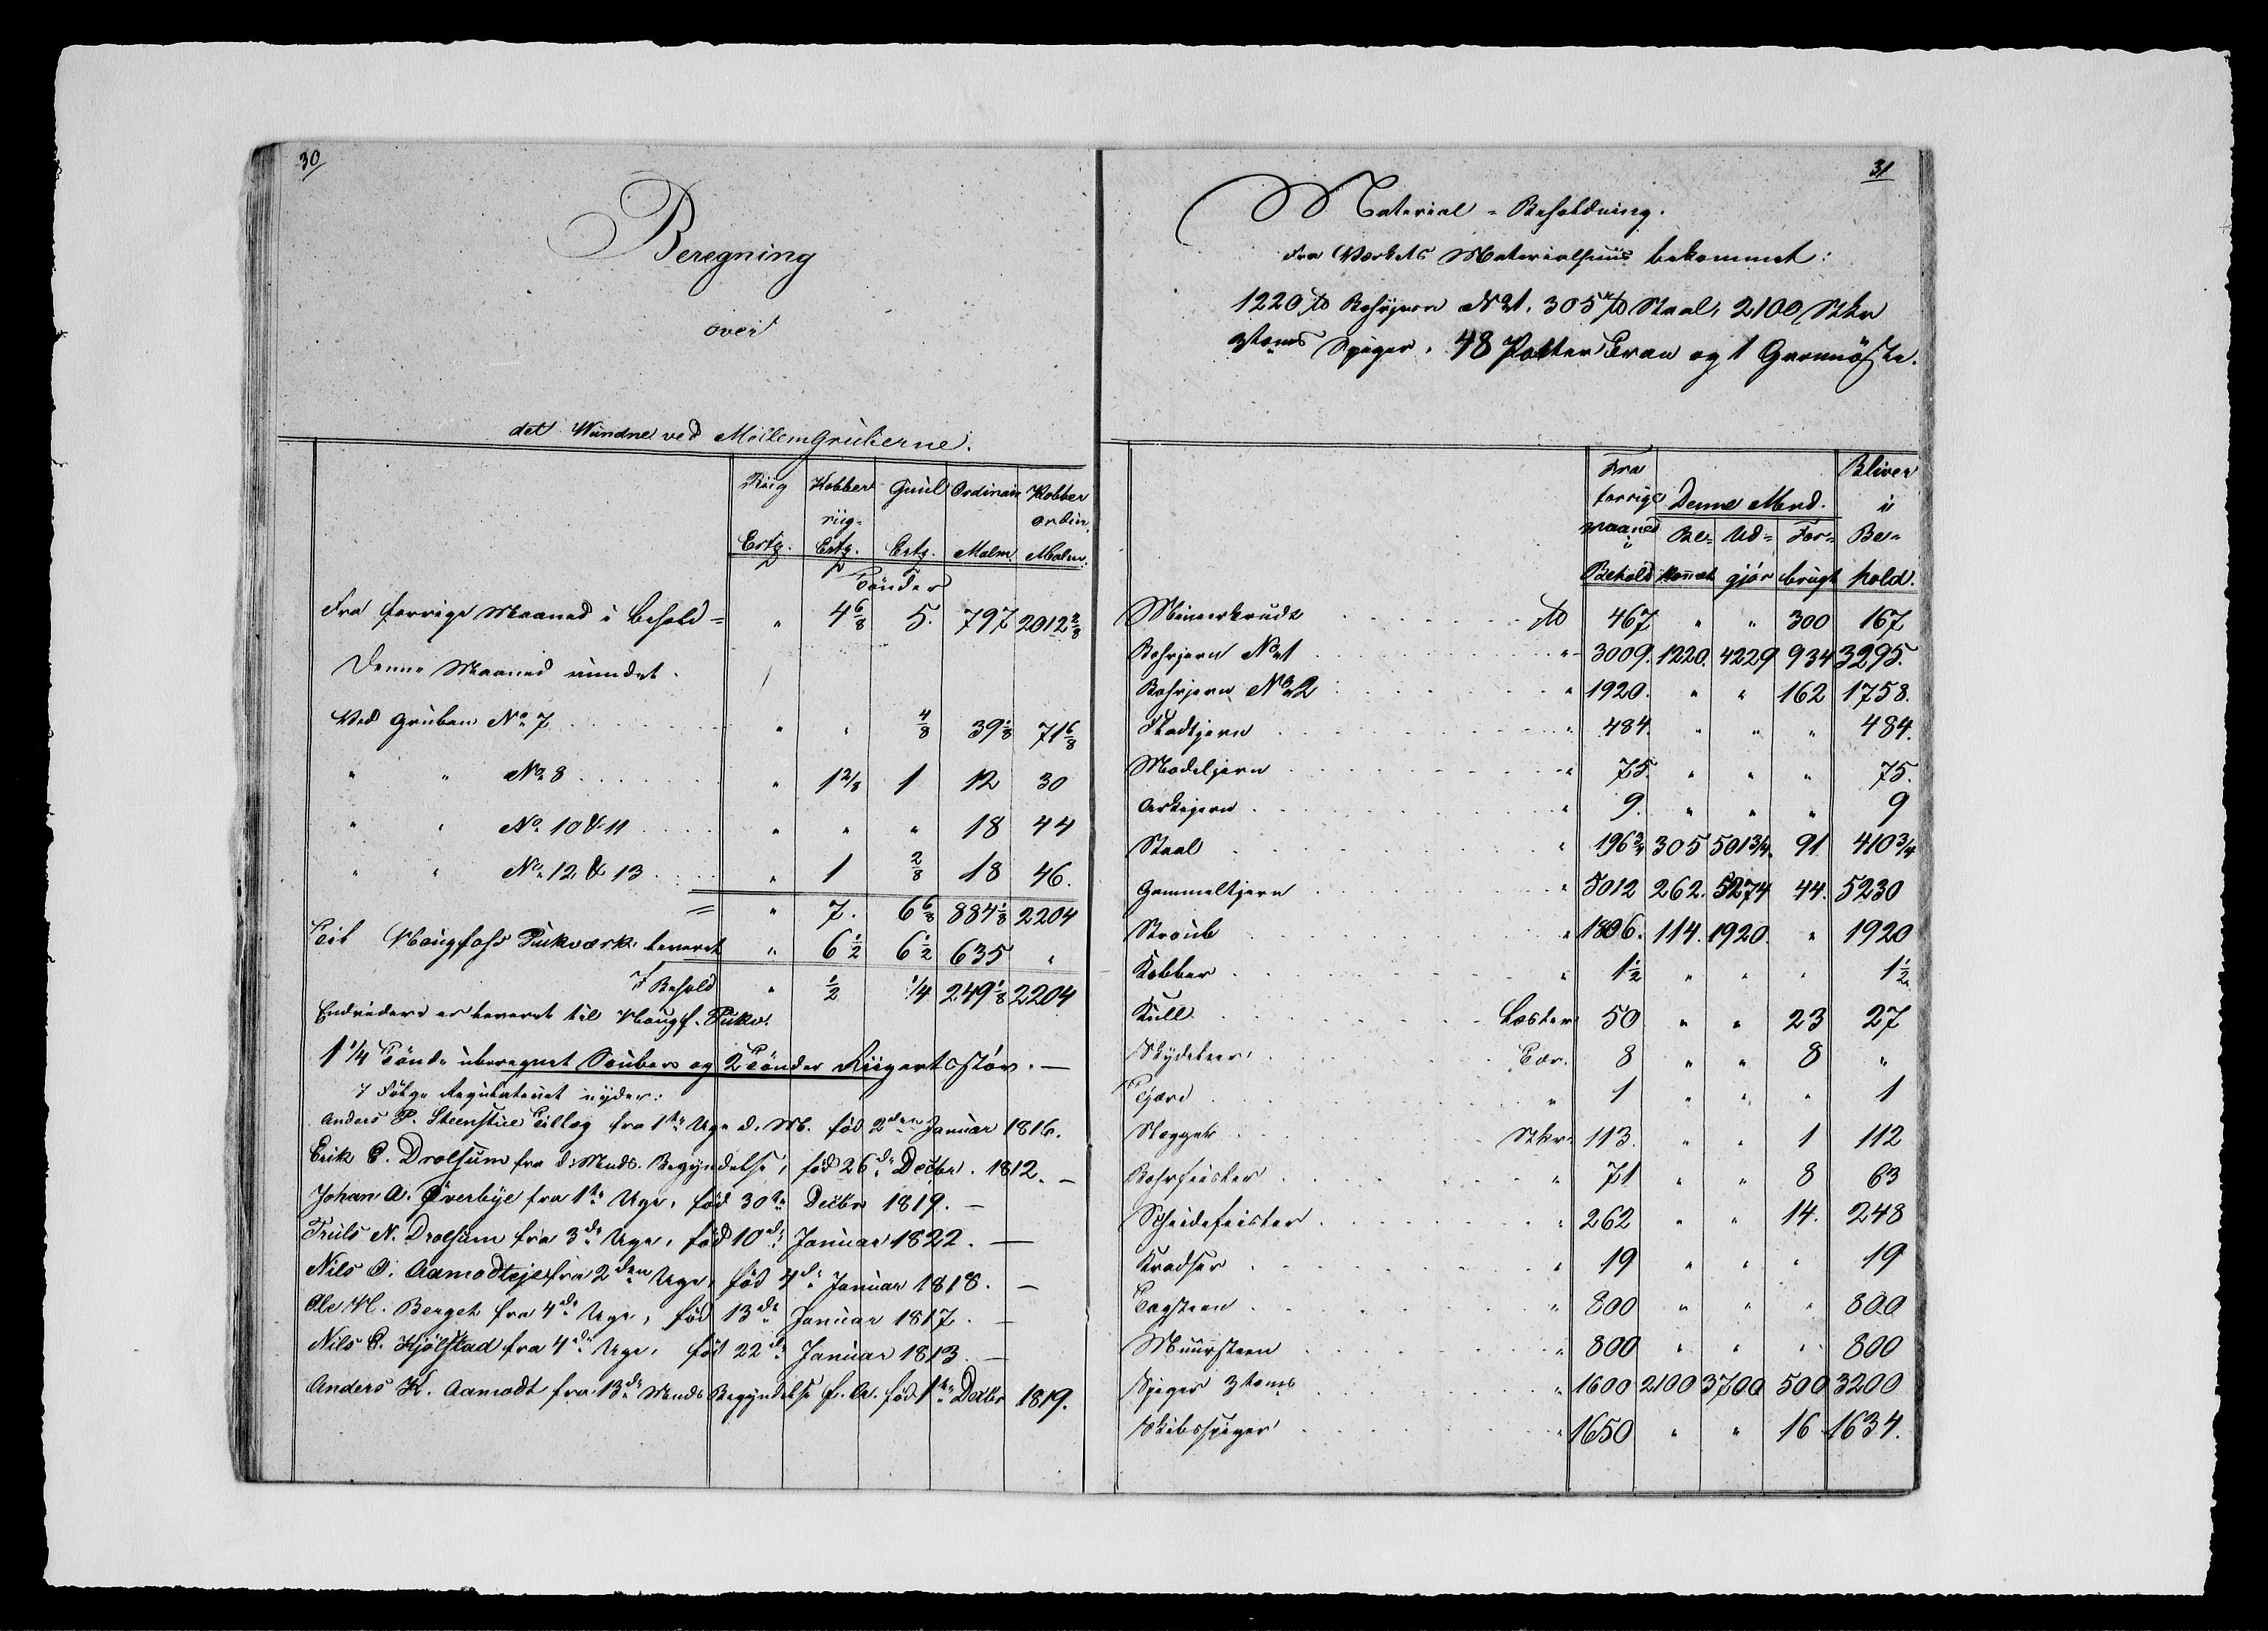 30
Beregning
over
det Wundne ved MöllemGruberne.
Riig Kobber Guul Ordinair Kobber
riig- ordin.
Ertz. Ertz. Ertz. Malm. Malm.
Tönder
Fra forrige Maaned i Behold = " 4 6/8 5. 797 2012 2/8
Denne Maaned vundet.
Ved Gruben No 7 " " 4/8 39 1/8 71 6/8
" " No 8 " 1 2/8 1 12 30
" " No 10 & 11 " " " 18 44
" " No 12 & 13 " 1 2/8 18 46.
= " 7. 6 6/8 884 1/8 2204
Til Hougfoss Pukværk leveret " 6 1/2 6 1/2 635 "
I Behold " 1/2 1/4 249 1/8 2204
Endvidere er leveret til Hougf. Pukv.
1 1/4 Tönde uberegnet Söubers og 2 Tönder Riigertsstöv. —
I Fölge Regulativet nyder:
Anders P. Steenstue Tillæg fra 1te Uge d. M. föd 2den Januar 1816.
Erik E. Drolsum fra d: Mnds. Begyndelse, föd 26de Decbr. 1812. —
Johan A. Överbye fra 1te Uge, föd 30te Decbr 1819. —
Truls N. Drolsum fra 3de Uge, föd 10de Januar 1822. —
Nils O. Aamodteje fra 2den Uge, föd 4de Januar 1818. —
Ole H. Berget fra 4de Uge, föd 13de Januar 1817. —
Nils E. Kjölstad fra 4de Uge, föd 22de Januar 1813. —
Anders K. Aamodt fra 13de Mnds Begyndelse f. A. föd 1te Decbr 1819.
31
Material-Beholdning.
Fra Værkets Materialhuus bekommet:
1220 ℔ Bohrjern No 1, 305 ℔ Staal, 2100 Stkr
3toms Spiger, 48 Potter Tran og 1
Fra Bliver
forrige Denne Mnd. i
Maaned i Be- Ud- For- Be-
Behold kommet gjör brugt hold.
Minerkrudt ℔ 467 " " 300 167
Bohrjern No 1 " 3009. 1220. 4229 934 3295.
Bohrjern No 2 " 1920. " " 162 1758.
Stadtjern " 484. " " " 484.
Modeljern " 75. " " " 75.
Askejern " 9. " " " 9
Staal " 196 3/4 305 501 3/4. 91 410 3/4
Gammeltjern " 5012 262. 5274 44. 5230
Stroub " 1806. 114. 1920. " 1920
Kobber " 1 1/2 " " " 1 1/2
Kull Læster 50 " " 23 27
Skydeleer, Tør. 8 " " 8 "
Tjære " 1 " " " 1
Skyggeb Stkr. 113. " " 1 112
Bohrfeister " 71 " " 8 63
Scheidefeister " 262 " " 14. 248
Kradser " 19 " " " 19
Tagsteen " 800 " " " 800
Muursteen " 800 " " " 800
Spiger 3toms " 1600 2100 3700 500 3200
Skibsspiger " 1650 " " 16 1634.